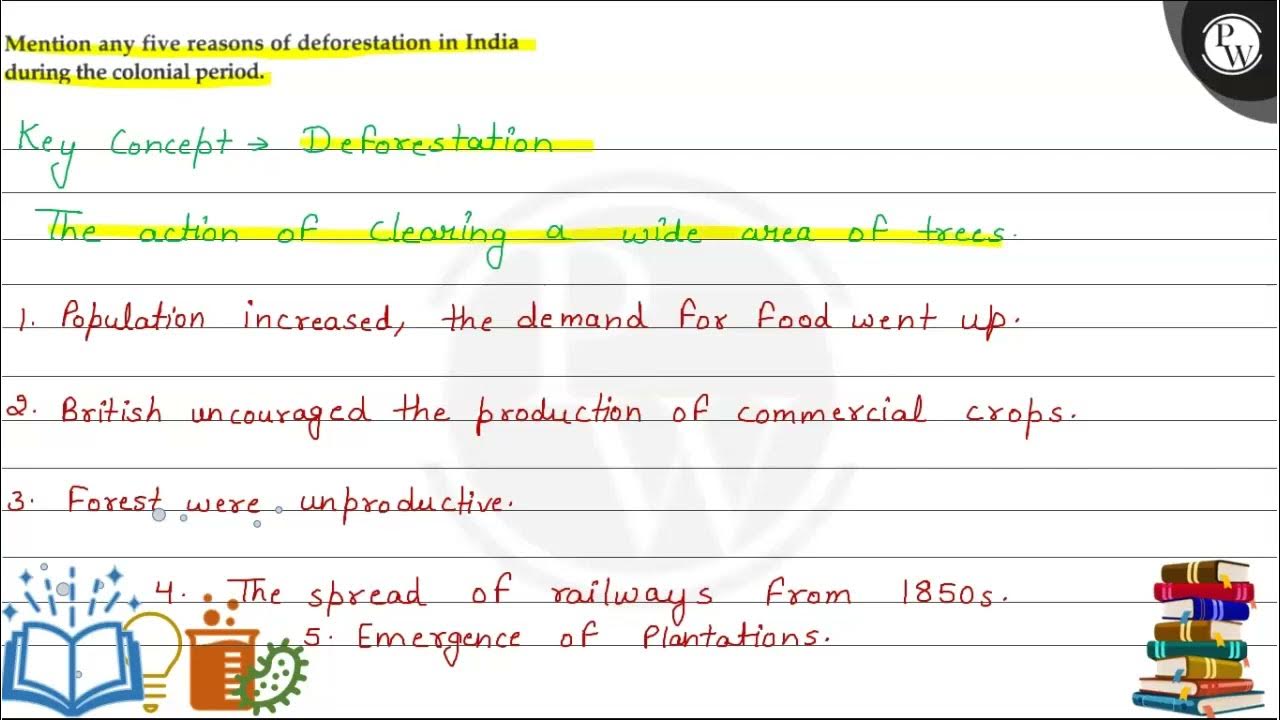 Mention any five reasons of deforestation in India
during the colonial period.
PW
Key Concept → Deforestation
The action of clearing a wide area of trees.
1. Population increased, the demand for food went up.
2. British uncouraged the production of commercial crops.
3. Forest were unproductive.
4. The spread of railways from 1850s.
5. Emergence of Plantations.